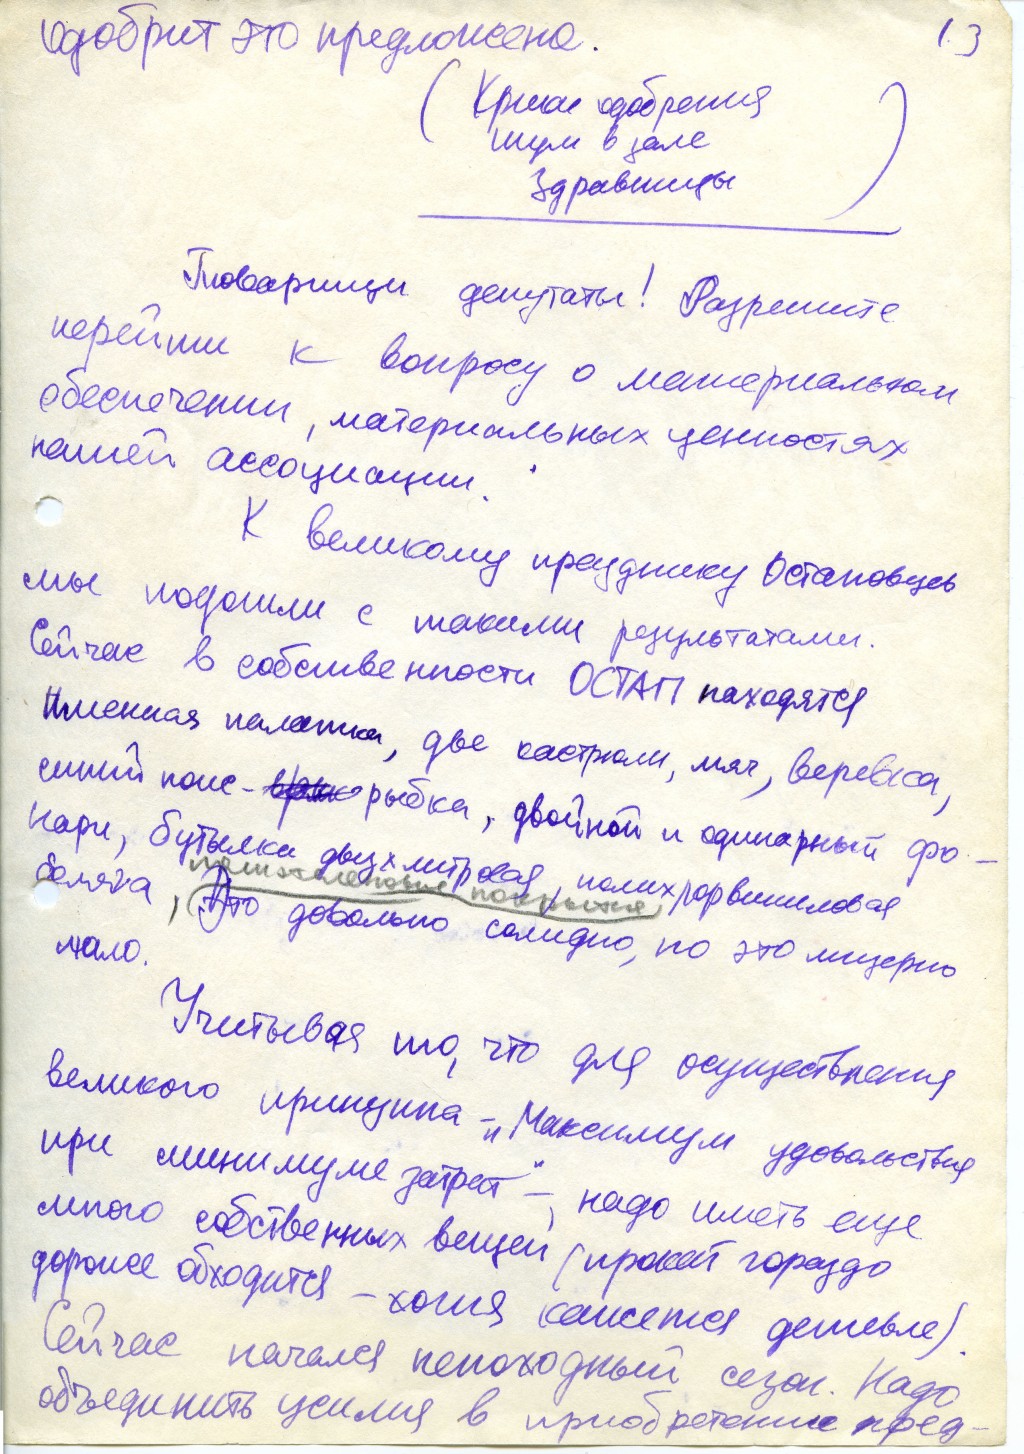 одобрит это предложено.
13
(Крики одобрения
шум в зале
Здравницы)
Товарищи депутаты! Разрешите
перейти к вопросу о материальном
обеспечении, материальных ценностях
нашей ассоциации.
К великому празднику Остаповцев
мы подошли с такими результатами.
Сейчас в собственности ОСТАП находятся
Именная палатка, две кастрюли, мяч, веревка,
синий пояс - рыбка, двойной и одинарный фо-
нари, бутылка двухлитровая, полихлорвиниловая
полиэтиленовые покрытия,
Это довольно солидно, но это мизерно
мало.
Учитывая то, что для осуществления
великого принципа - „Максимум удовольствия
при минимуме затрат" -, надо иметь еще
много собственных вещей (прокат гораздо
дороже обходится - хотя кажется дешевле).
Сейчас начался непоходный сезон. Надо
объединить усилия в приобретение пред-